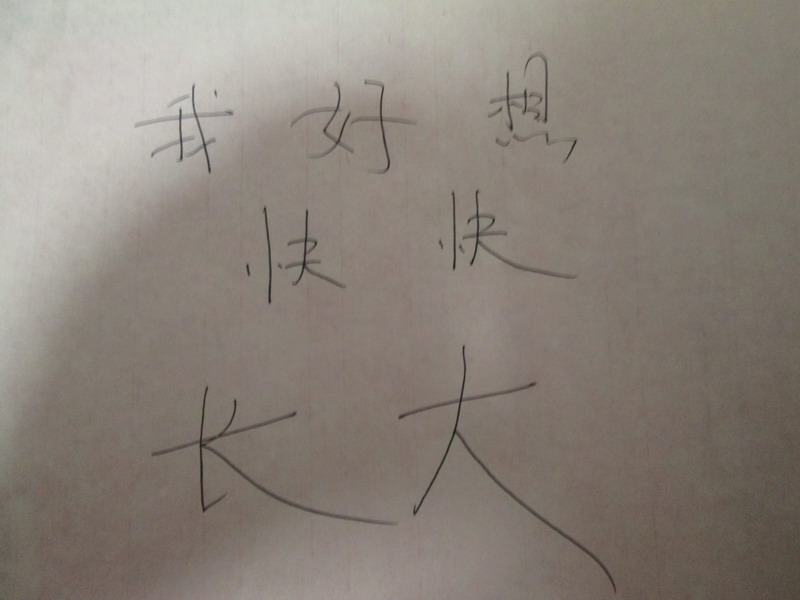 我好想
快快
长大